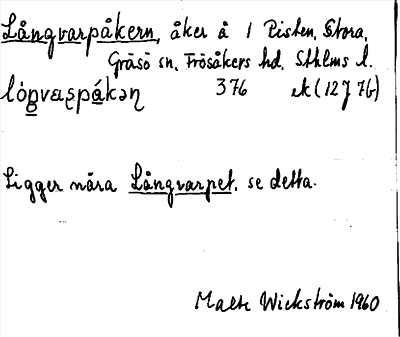 Långvarpåkern, åker å 1 Pisten, Stora,
Gräsö sn, Frösåkers hd, Sthlms l.
lòŋvaʂpákəɳ 376 ek (12J7G)
Ligger nära Långvarpet, se detta.
Malte Wickström 1960